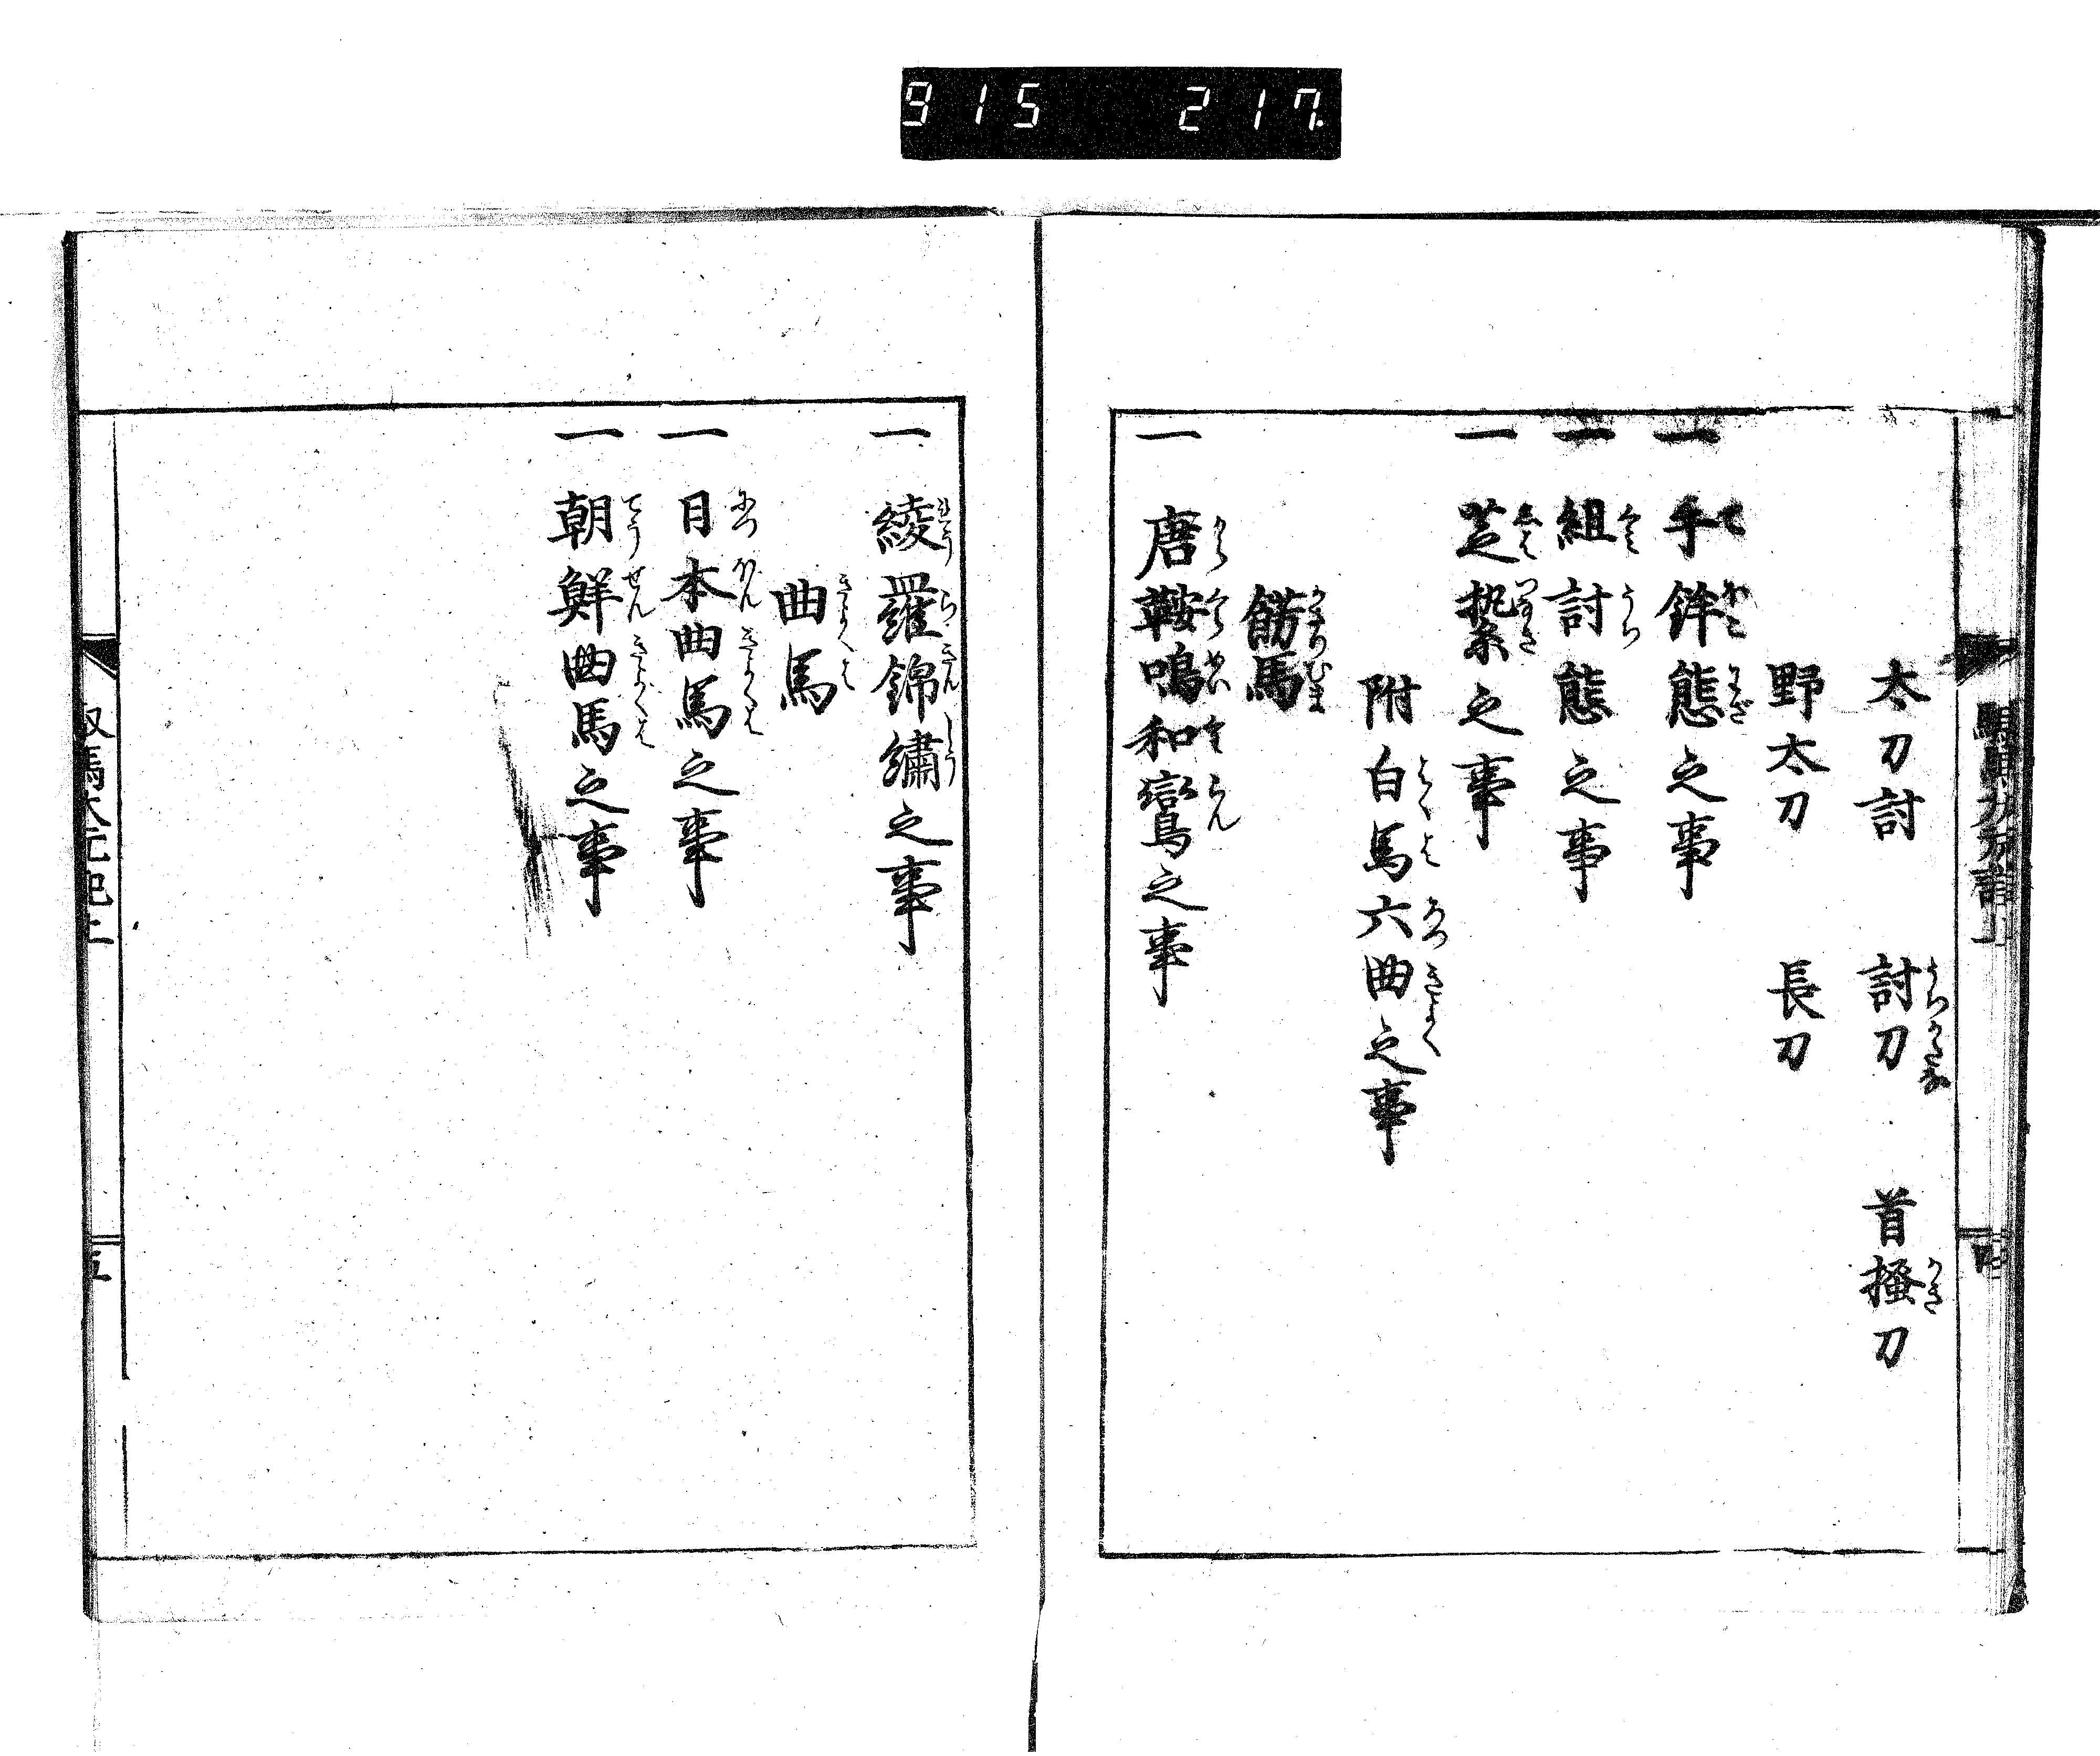 915 217
太刀討 討刀 首搔刀
野太刀 長刀
一 手鉾態之事
一 組討態之事
一 芝繋之事
附白馬六曲之事
餝馬
一 唐鞍鳴和鸞之事
四
一 綾羅錦繡之事
曲馬
一 日本曲馬之事
一 朝鮮曲馬之事
五